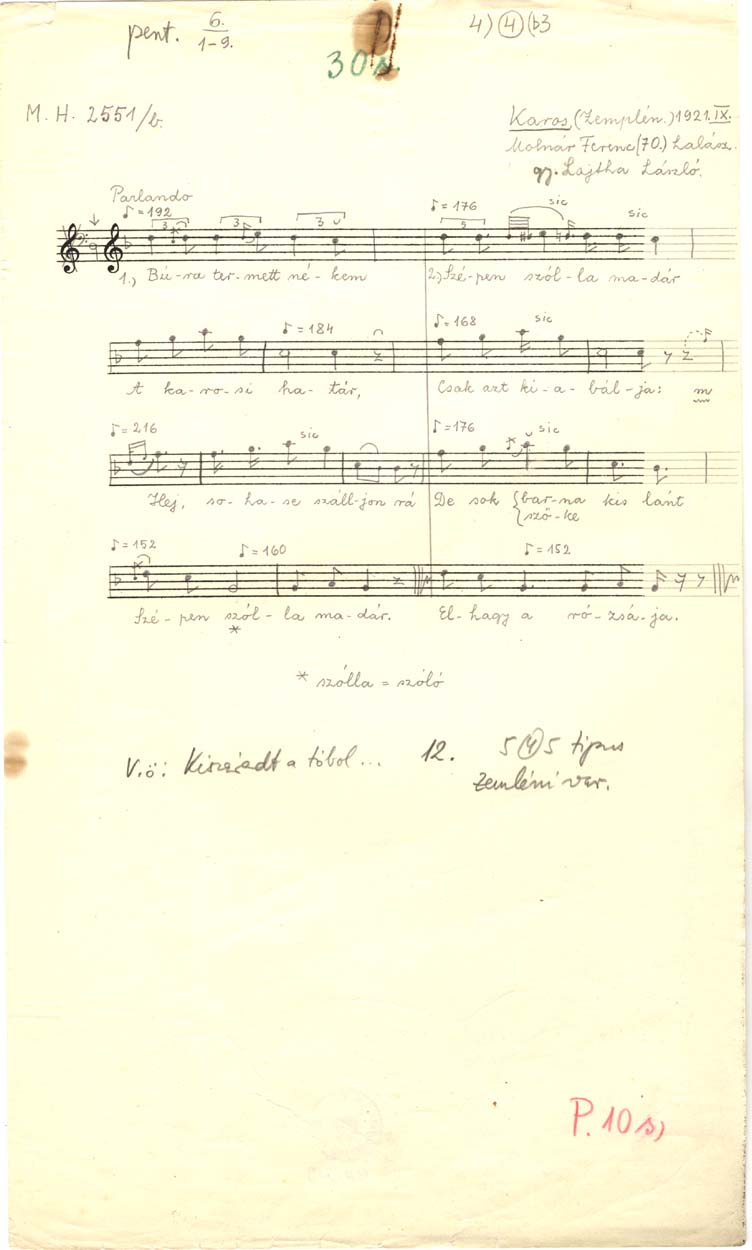 pent. 6. 1-9.
4) 4 (b3
30s.
M. H. 2551/b.
Karos, (Zemplén.) 1921. IX.
Molnár Ferenc (70.) halász.
gy. Lajtha László.
Parlando
♪ = 192 3 3 3 ♪ = 176 5 sic sic
1.) Bú-ra ter-mett né-kem 2.) Szé-pen szól-la ma-dár
♪ = 184 ♪ = 168 sic
A ka-ro-si ha-tár, Csak azt ki-a-bál-ja: m
♪ = 216 sic ♪ = 176 sic
Hej, so-ha-se száll-jon rá De sok {bar-na kis lánt
{szö-ke
♪ = 152 ♪ = 160 ♪ = 152
Szé-pen szól-la ma-dár. El-hagy a ró-zsá-ja.
*
* szólla = szóló
V.ö: Kiszáradt a tóbol... 12. 5 4 5 tipus
Zempléni var.
P. 10 s)